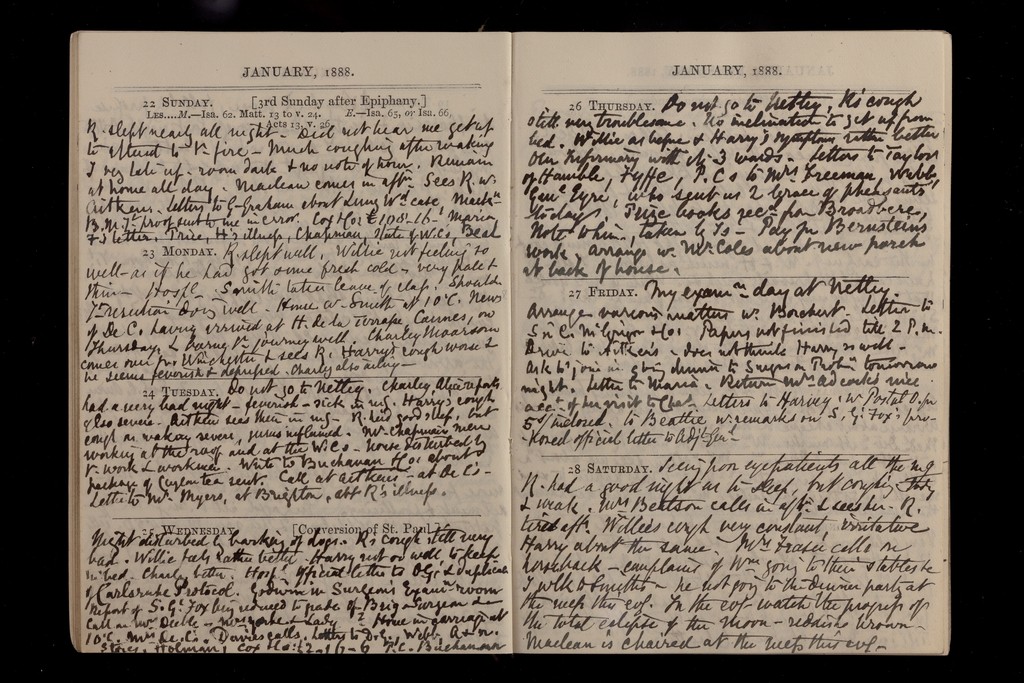 JANUARY, 1888.
22 SUNDAY. [3rd Sunday after Epiphany.]
LES....M.—Isa. 62. Matt. 13 to v. 24. E.—Isa. 65, or Isa. 66,
Acts 13, v. 26.
R. slept nearly all night - Did not hear me get up
to attend to ye fire - Much coughing after waking
I very late up - room dark & no note of hour. Remain
at home all day. Maclean comes in aftn. Sees R. w.
Aitken. Letters to G. Graham about case,
B. M. Jl. proof sent to me in error. Cox & Co: £108-16- Maria,
F's letter, Price, H's illness, Chapman, State of W.Cs, Beal
23 MONDAY. R. slept well, Willie not feeling so
well - as if he had got some fresh cold - very pale &
thin - Hospl. Smith taken leave of clap. Should
resection doing well. Home w. Smith at 10°C. News
of De C. having arrived at H. de la Terrasse, Cannes, on
Thursday, & bearing ye journey well. Charley Moorsom
comes over fr. Winchester & sees R. Harry's cough worse &
he seems feverish & depressed. Charley also ailing -
24 TUESDAY. Do not go to Netley. Charley reports
had a very bad night - feverish - sick in mg. Harry's cough
also severe. Aitken sees them in mg. R. had good sleep, but
cough on waking severe, much inflamed. Mr. Chapman's men
working at the roof and at the W.Cs - house disturbed by
ye work & workmen. Write to Buchanan & Co: about
package of Ceylon tea sent. Call at Aitkens - at De C's -
Letter to Mr. Myers, at Brighton, abt R's illness.
25 WEDNESDAY. [Conversion of St. Paul.]
Night disturbed by barking of dogs. R's cough still very
bad. Willie feels rather better. Harry not so well to keep
in bed. Charley better. Hospl. Official letter to D.G. & duplicate
of Carlsruhe Protocol. Godwin in Surgeons Examn-room
Report of S.Gl. Fox being reduced to grade of Brig-Surgeon &
Call on Mrs Deeble - Mrs Yorke & Lady. Home in carriage at
10°C. Mrs De C's. Davies calls. Letters to D.G., Webb, A & N.
Stores, Holman, Cox & Co: £2-17-6 P.C. Buchanan
JANUARY, 1888.
26 THURSDAY. Do not go to Netley, R's cough
still very troublesome. No inclination to get up from
bed. Willie as before & Harry's symptoms rather better
Our Infirmary with its 3 wards. Letters to Taylor
of Hamble, Fyffe, P.Cs to Mrs Freeman, Webb,
Genl. Eyre, who sent us 2 brace of pheasants
today. Prize books recd. from Broadbere,
Note to him, taken by Is - Pay for Bernstein's
work, Arrange w. Mr. Coles about new porch
at back of house.
27 FRIDAY. My examn. day at Netley.
Arrange various matters w. Borchert. Letter to
S & C. McGrigor & Co: Papers not finished till 2 P.m.
Drive to Aitken's - does not think Harry so well -
Ask to join in giving dinner to Surgeons on Probn. tomorrow
night. Letter to Maria. Return Mrs Adcock's nice
acct. of her visit to Chat. Letters to Harvey, w. Postal O. for
5s/ inclosed, to Beattie w. remarks on S. Gl: Fox: pro-
posed official letter to Adjt. Genl -
28 SATURDAY. Seeing poor eyepatients all the mg
R. had a good night as to sleep, but coughing
& weak. Mrs Beatson calls in aftn & sees her. R.
tired aftr. Willie's cough very constant, irritative
Harry about the same. Mrs Fraser calls on
horseback - complains of Wm. going to their stables &c
I walk to Smith's - he not going to the dinner party at
the mess this evg. In the evg watch the progress of
the total eclipse of the moon - reddish brown
Maclean is chaired at the mess this evg -